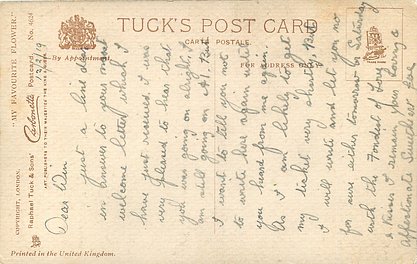 TUCK'S POST CARD
CARTE POSTALE.
By Appointment.
FOR ADDRESS ONLY
"MY FAVOURITE FLOWER."
Carbonette Postcard No.
COPYRIGHT, LONDON.
Raphael Tuck & Sons'
ART PUBLISHERS TO THEIR MAJESTIES THE KING &
Printed in the United Kingdom.
12/2/19
Dear Win
just a line or so
in answer to your most
welcome letter which I
have just received. I was
very pleased to hear that
you was going on alright, I
am still going on A1. But
I want to tell you not
to write here again until
you heard from me again.
As I am likely to get
my ticket very shortly. But
I will write and let you no
for sure either tomorrow or Saturday
with the Fondest of Love
& Kisses I remain your Loving &
Affectionate Sweetheart